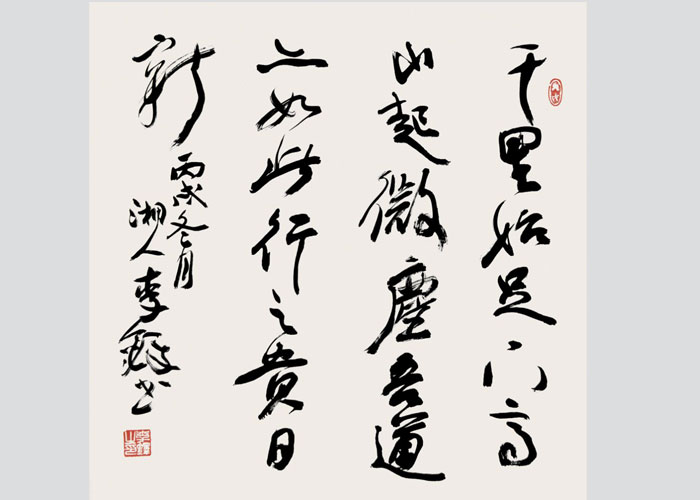 千里始足下高
山起微塵吾道
亦如此行之貴日
新
丙戌冬月
湘人李鐸书